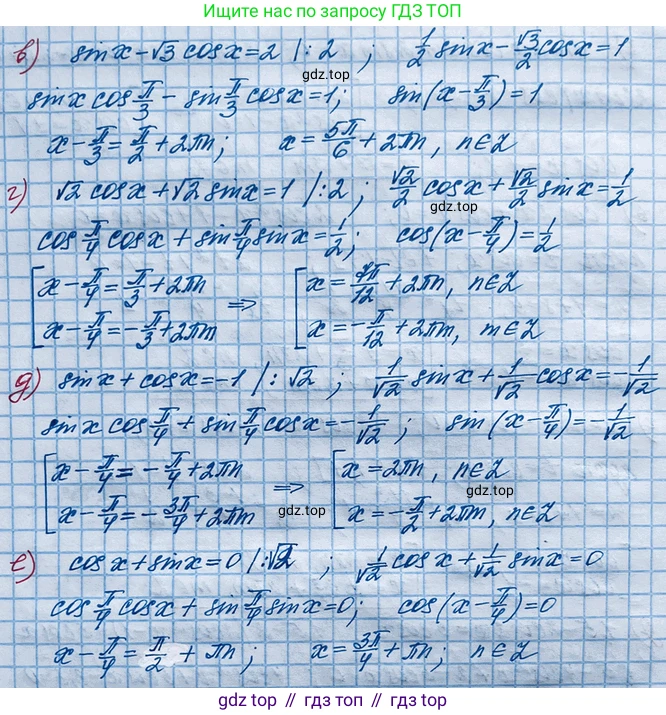 Ищите нас по запросу ГДЗ ТОП
в) sin x - √3 cos x = 2 | : 2 ; 1/2 sin x - √3/2 cos x = 1
gdz.top
sin x cos π/3 - sin π/3 cos x = 1; sin(x - π/3) = 1
x - π/3 = π/2 + 2πn; x = 5π/6 + 2πn, n∈Z
г) √2 cos x + √2 sin x = 1 | : 2 ; √2/2 cos x + √2/2 sin x = 1/2
gdz.top
cos π/4 cos x + sin π/4 sin x = 1/2; cos(x - π/4) = 1/2
[ x - π/4 = π/3 + 2πn ⇒ [ x = 7π/12 + 2πn, n∈Z
x - π/4 = -π/3 + 2πm x = -π/12 + 2πm, m∈Z
gdz.top
д) sin x + cos x = -1 | : √2 ; 1/√2 sin x + 1/√2 cos x = -1/√2
sin x cos π/4 + sin π/4 cos x = -1/√2 ; sin(x - π/4) = -1/√2
[ x - π/4 = -π/4 + 2πn ⇒ [ x = 2πn, n∈Z
x - π/4 = -3π/4 + 2πm x = -π/2 + 2πm, n∈Z
gdz.top
е) cos x + sin x = 0 | : √2 ; 1/√2 cos x + 1/√2 sin x = 0
gdz.top
cos π/4 cos x + sin π/4 sin x = 0; cos(x - π/4) = 0
x - π/4 = π/2 + πn ; x = 3π/4 + πn ; n∈Z
gdz.top // гдз.топ // gdz.top // гдз.топ